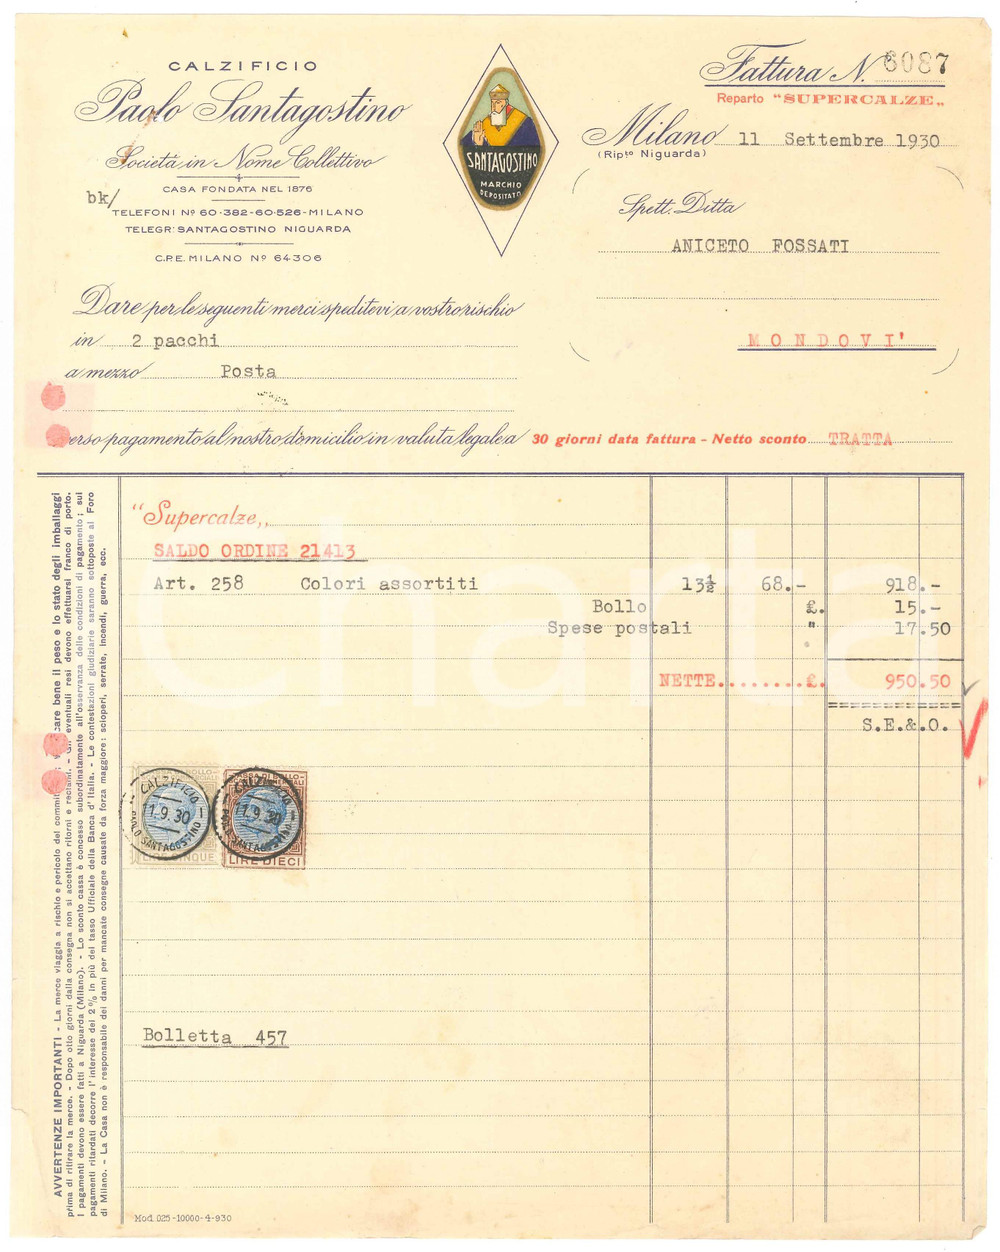 CALZIFICIO
Paolo Santagostino
Società in Nome Collettivo
CASA FONDATA NEL 1876
bk/
TELEFONI Nº 60-382-60-526-MILANO
TELEGR: SANTAGOSTINO NIGUARDA
C.P.E. MILANO Nº 64306
SANTAGOSTINO
MARCHIO
DEPOSITATO
Fattura N. 6087
Reparto "SUPERCALZE„
Milano 11 Settembre 1930
(Ripto Niguarda)
Spett. Ditta
ANICETO FOSSATI
MONDOVI'
Dare per le seguenti merci speditevi a vostro rischio
in 2 pacchi
a mezzo Posta
verso pagamento al nostro domicilio in valuta legale a 30 giorni data fattura - Netto sconto TRATTA
"Supercalze„
SALDO ORDINE 21413
Art. 258 Colori assortiti 13½ 68.- 918.-
Bollo £. 15.-
Spese postali " 17.50
NETTE........£. 950.50
S.E.&.O.
TASSA DI BOLLO
CALZIFICIO
11.9.30
PAOLO SANTAGOSTINO
LIRE CINQUE
CALZIFICIO
11.9.30
PAOLO SANTAGOSTINO
LIRE DIECI
Bolletta 457
Mod. 025-10000-4-930
AVVERTENZE IMPORTANTI - La merce viaggia a rischio e pericolo del committente; care bene il peso e lo stato degli imballaggi
prima di ritirare la merce. - Dopo otto giorni dalla consegna non si accettano ritorni e reclami. - Gli eventuali resi devono effettuarsi franco di porto.
I pagamenti devono essere fatti a Niguarda (Milano). - Lo sconto cassa è concesso subordinatamente all'osservanza delle condizioni di pagamento; sui
pagamenti ritardati decorre l'interesse del 2% in più del tasso Ufficiale della Banca d'Italia. - Le contestazioni giudiziarie saranno sottoposte al Foro
di Milano. - La Casa non è responsabile dei danni per mancate consegne causate da forza maggiore: scioperi, serrate, incendi, guerra, ecc.
Charta